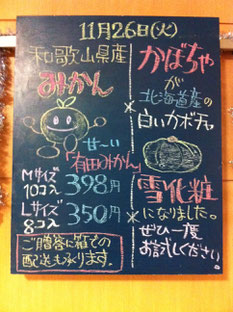 11月26日(火)
和歌山県産
みかん
甘〜い
「有田みかん」
Mサイズ
10コ入 398円
Lサイズ
8コ入 350円
ご贈答に箱での
配送も承ります。
かぼちゃ
が
北海道産の
白いカボチャ
雪化粧
になりました。
ぜひ一度
お試しください